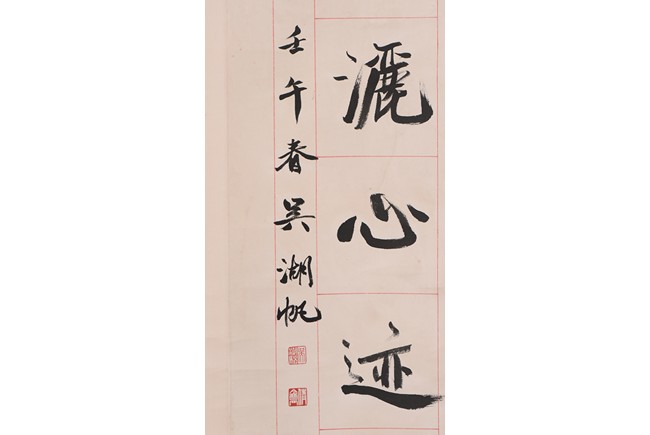 灑心迹
壬午春吴湖帆